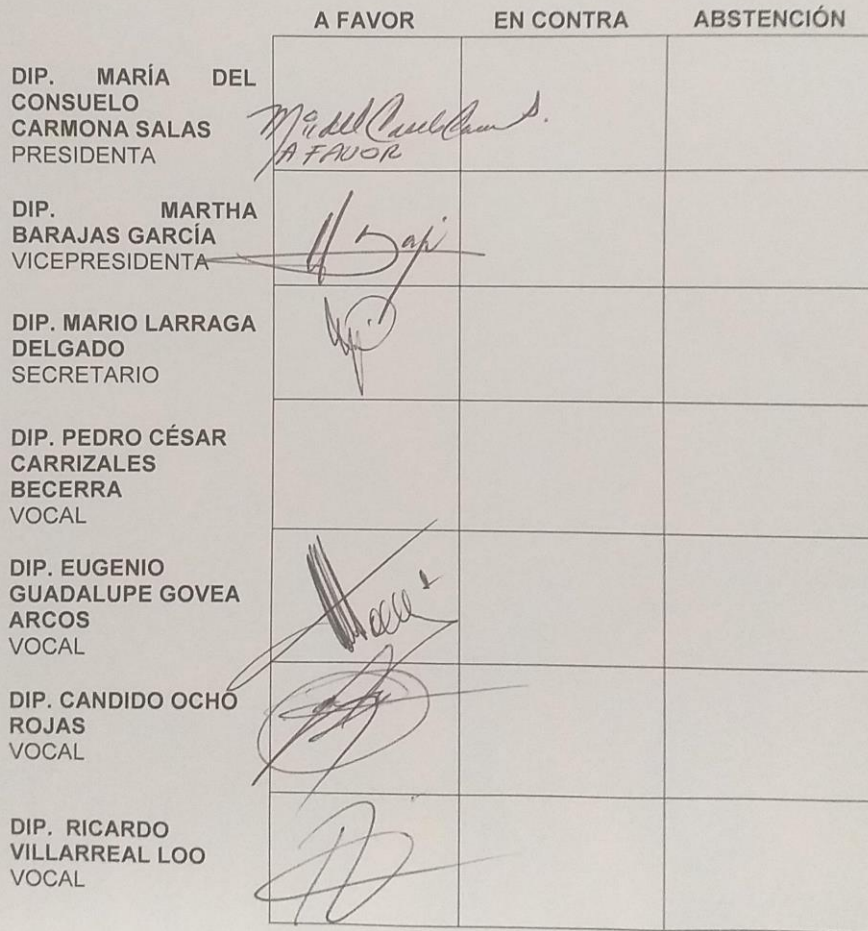 A FAVOR EN CONTRA ABSTENCIÓN
DIP. MARÍA DEL
CONSUELO
CARMONA SALAS
PRESIDENTA
A FAVOR
DIP. MARTHA
BARAJAS GARCÍA
VICEPRESIDENTA
DIP. MARIO LARRAGA
DELGADO
SECRETARIO
DIP. PEDRO CÉSAR
CARRIZALES
BECERRA
VOCAL
DIP. EUGENIO
GUADALUPE GOVEA
ARCOS
VOCAL
DIP. CANDIDO OCHO
ROJAS
VOCAL
DIP. RICARDO
VILLARREAL LOO
VOCAL